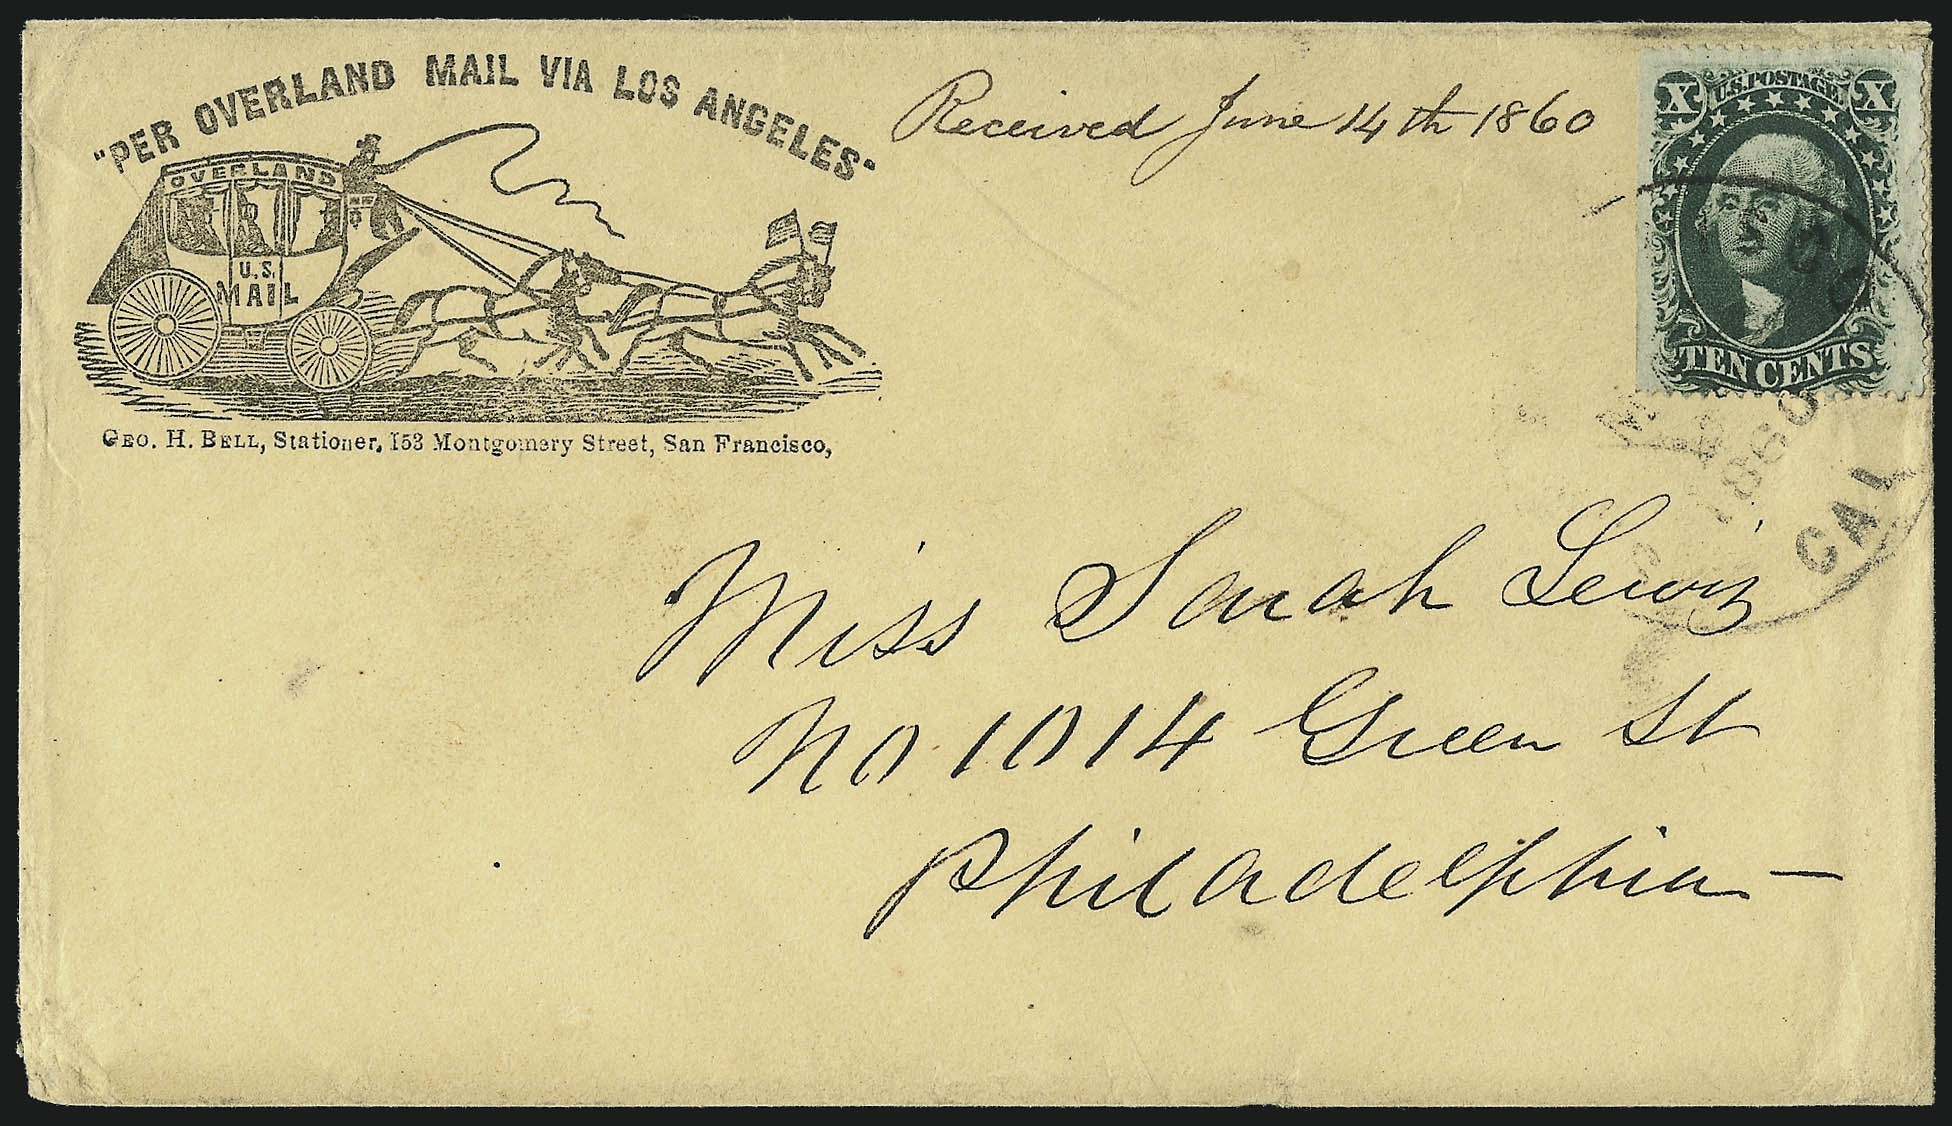 "PER OVERLAND MAIL VIA LOS ANGELES"
OVERLAND
U.S.
MAIL
GEO. H. BELL, Stationer, 153 Montgomery Street, San Francisco,
Received June 14th 1860
X U.S. POSTAGE X
TEN CENTS
1860
CAL
Miss Sarah Lewis
No 1014 Green St
Philadelphia —